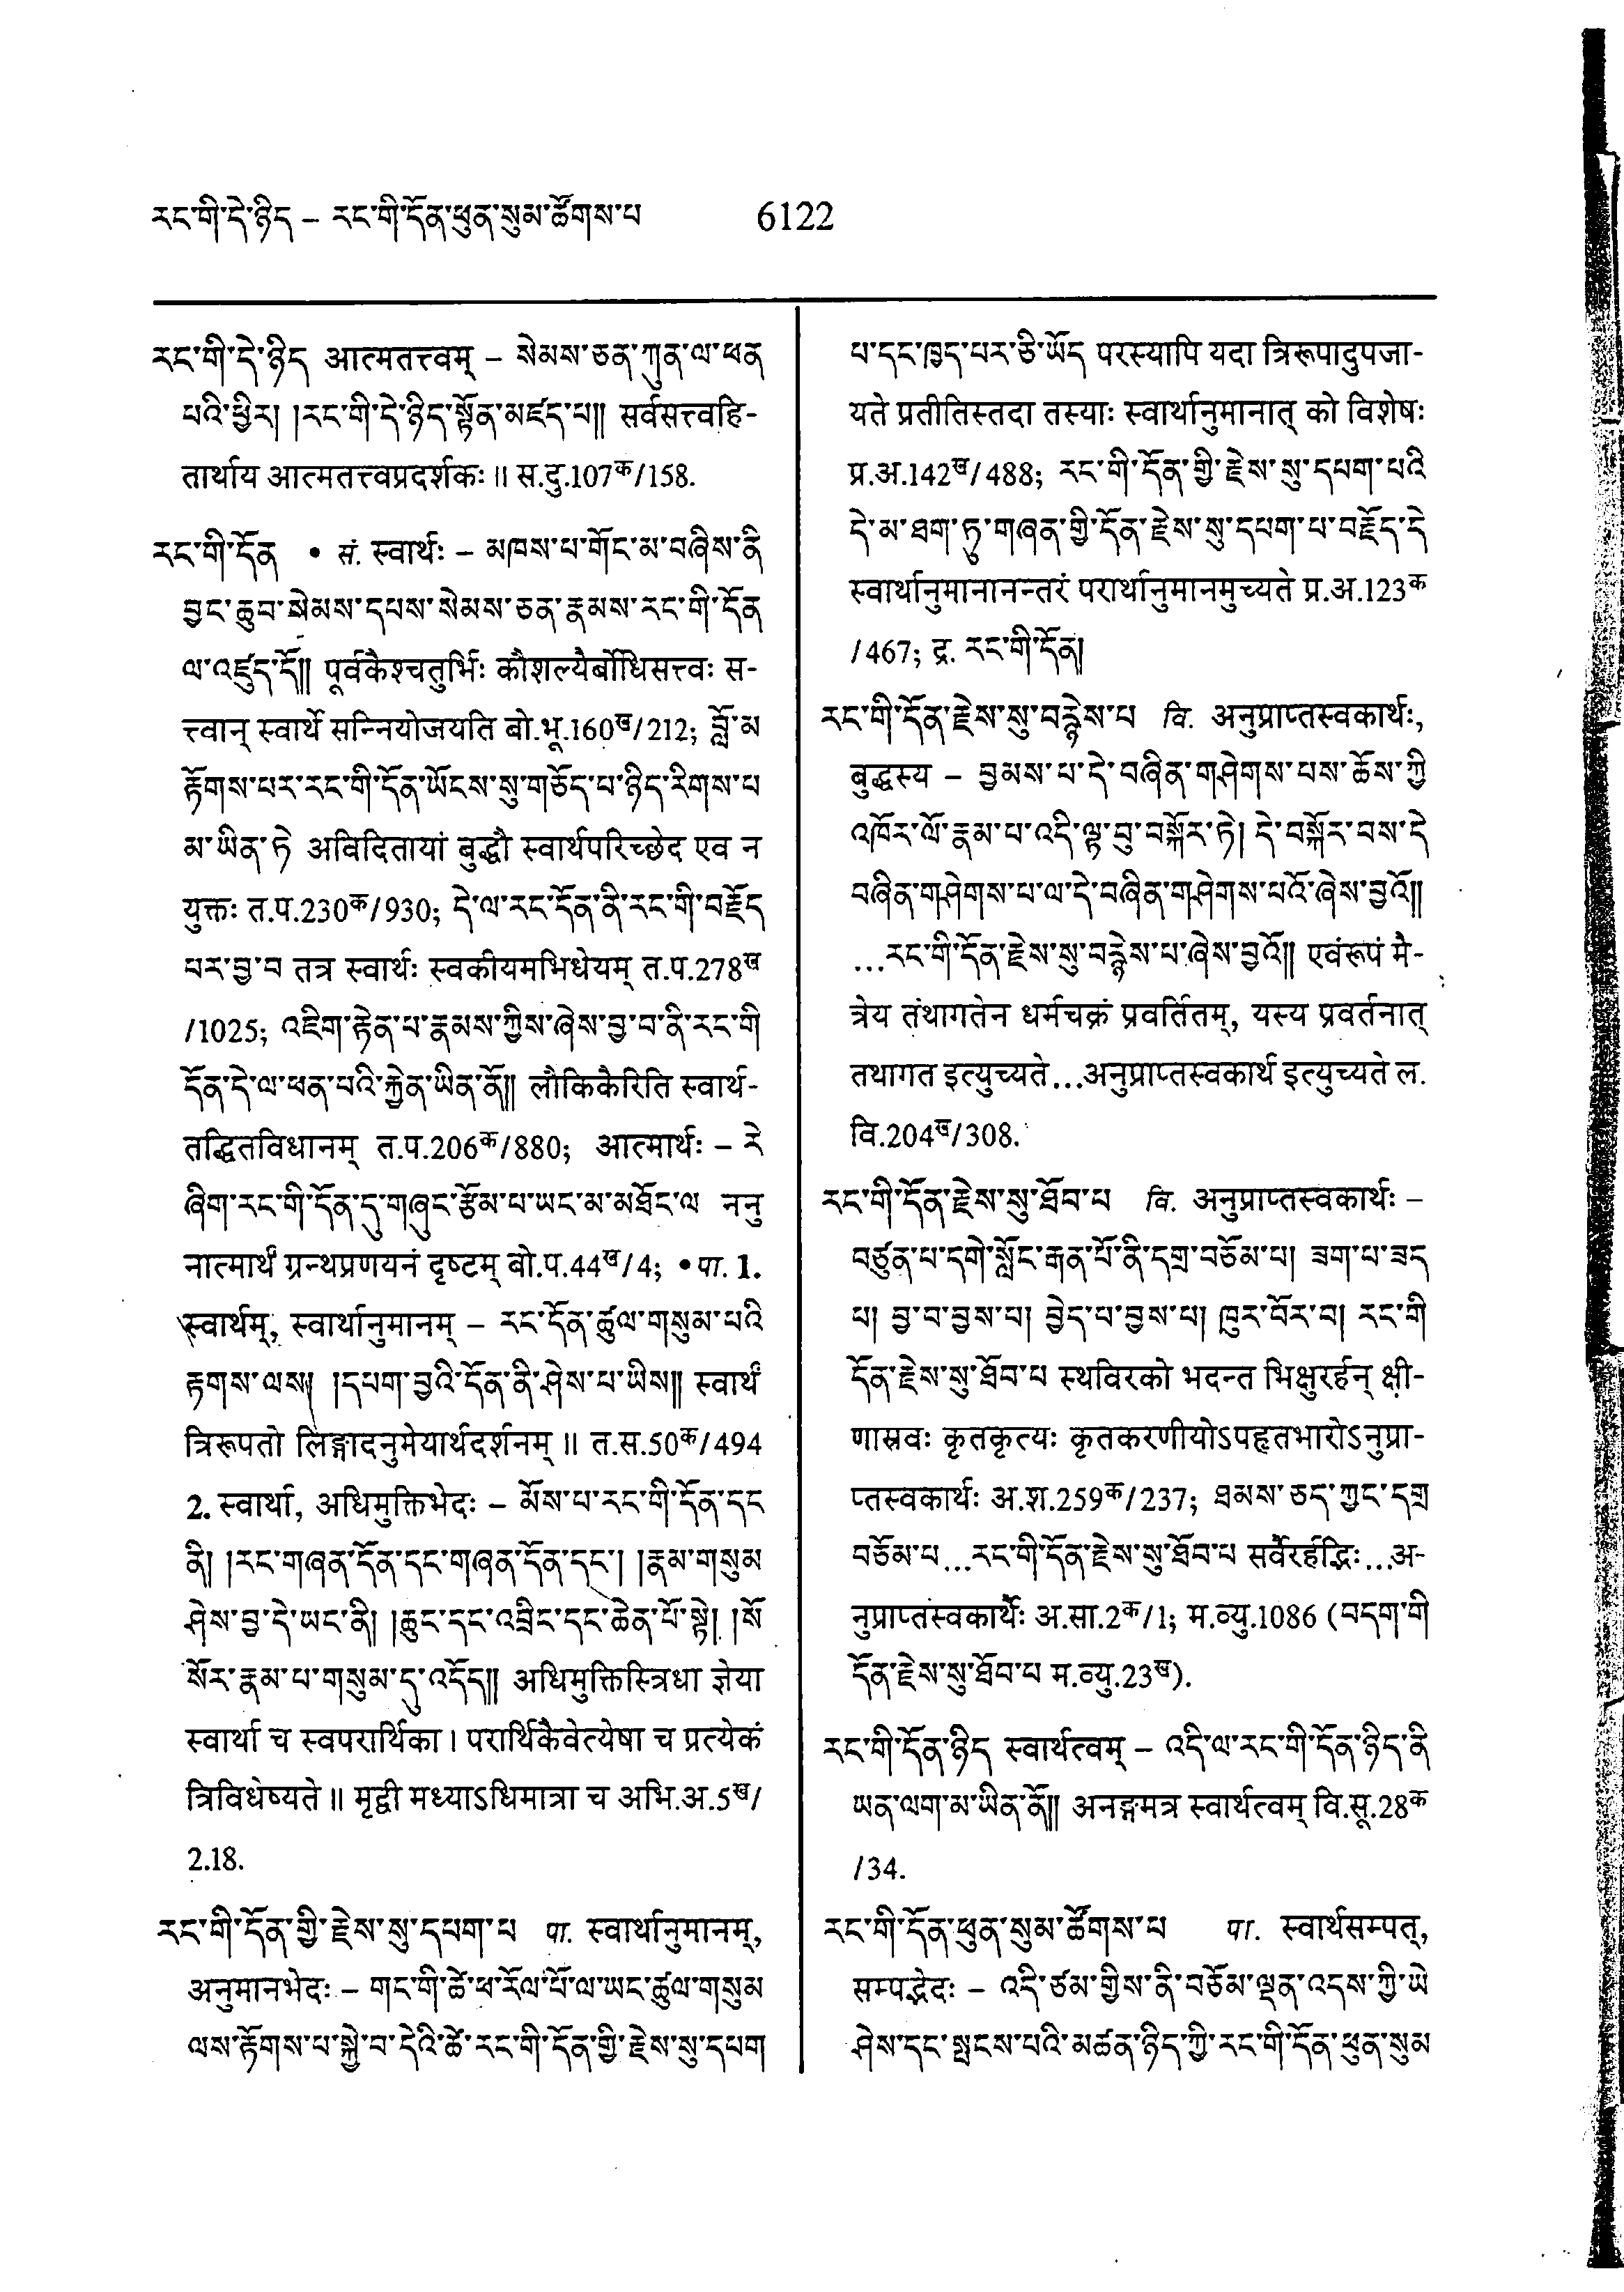 རང་གི་དེ་ཉིད – རང་གི་དོན་ཕུན་སུམ་ཚོགས་པ 6122
རང་གི་དེ་ཉིད आत्मतत्त्वम् – སེམས་ཅན་ཀུན་ལ་ཕན
པའི་ཕྱིར། །རང་གི་དེ་ཉིད་སྟོན་མཛད་པ།། सर्वसत्त्वहि-
तार्थाय आत्मतत्त्वप्रदर्शकः ॥ स.दु.107क/158.
རང་གི་དོན • सं. स्वार्थः – མཁས་པ་གོང་མ་བཞིས་ནི
བྱང་ཆུབ་སེམས་དཔས་སེམས་ཅན་རྣམས་རང་གི་དོན
ལ་འཛུད་དོ།། पूर्वकैश्चतुर्भिः कौशल्यैर्बोधिसत्त्वः स-
त्त्वान् स्वार्थे सन्नियोजयति बो.भू.160ख/212; བློ་མ
རྟོགས་པར་རང་གི་དོན་ཡོངས་སུ་གཅོད་པ་ཉིད་རིགས་པ
མ་ཡིན་ཏེ अविदितायां बुद्धौ स्वार्थपरिच्छेद एव न
युक्तः त.प.230क/930; དེ་ལ་རང་དོན་ནི་རང་གི་བརྗོད
པར་བྱ་བ तत्र स्वार्थः स्वकीयमभिधेयम् त.प.278ख
/1025; འཇིག་རྟེན་པ་རྣམས་ཀྱིས་ཞེས་བྱ་བ་ནི་རང་གི
དོན་དེ་ལ་ཕན་པའི་རྐྱེན་ཡིན་ནོ།། लौकिकैरिति स्वार्थ-
तद्धितविधानम् त.प.206क/880; आत्मार्थः – རེ
ཞིག་རང་གི་དོན་དུ་གཞུང་རྩོམ་པ་ཡང་མ་མཐོང་ལ ननु
नात्मार्थं ग्रन्थप्रणयनं दृष्टम् बो.प.44ख/4; • पा. 1.
स्वार्थम्, स्वार्थानुमानम् – རང་དོན་ཚུལ་གསུམ་པའི
རྟགས་ལས། །དཔག་བྱའི་དོན་ནི་ཤེས་པ་ཡིས།། स्वार्थं
त्रिरूपतो लिङ्गादनुमेयार्थदर्शनम् ॥ त.स.50क/494
2. स्वार्था, अधिमुक्तिभेदः – མོས་པ་རང་གི་དོན་དང
ནི། །རང་གཞན་དོན་དང་གཞན་དོན་དང་། །རྣམ་གསུམ
ཤེས་བྱ་དེ་ཡང་ནི། །ཆུང་དང་འབྲིང་དང་ཆེན་པོ་སྟེ། །སོ
སོར་རྣམ་པ་གསུམ་དུ་འདོད།། अधिमुक्तिस्त्रिधा ज्ञेया
स्वार्था च स्वपरार्थिका । परार्थिकैवेत्येषा च प्रत्येकं
त्रिविधेष्यते ॥ मृद्वी मध्याऽधिमात्रा च अभि.अ.5ख/
2.18.
རང་གི་དོན་གྱི་རྗེས་སུ་དཔག་པ पा. स्वार्थानुमानम्,
अनुमानभेदः – གང་གི་ཚེ་ཕ་རོལ་པོ་ལ་ཡང་ཚུལ་གསུམ
ལས་རྟོགས་པ་སྐྱེ་བ་དེའི་ཚེ་རང་གི་དོན་གྱི་རྗེས་སུ་དཔག
པ་དང་ཁྱད་པར་ཅི་ཡོད परस्यापि यदा त्रिरूपादुपजा-
यते प्रतीतिस्तदा तस्याः स्वार्थानुमानात् को विशेषः
प्र.अ.142ख/488; རང་གི་དོན་གྱི་རྗེས་སུ་དཔག་པའི
དེ་མ་ཐག་ཏུ་གཞན་གྱི་དོན་རྗེས་སུ་དཔག་པ་བརྗོད་དེ
स्वार्थानुमानानन्तरं परार्थानुमानमुच्यते प्र.अ.123क
/467; द्र. རང་གི་དོན།
རང་གི་དོན་རྗེས་སུ་བརྙེས་པ वि. अनुप्राप्तस्वकार्थः,
बुद्धस्य – བྱམས་པ་དེ་བཞིན་གཤེགས་པས་ཆོས་ཀྱི
འཁོར་ལོ་རྣམ་པ་འདི་ལྟ་བུ་བསྐོར་ཏེ། དེ་བསྐོར་བས་དེ
བཞིན་གཤེགས་པ་ལ་དེ་བཞིན་གཤེགས་པའོ་ཞེས་བྱའོ།།
...རང་གི་དོན་རྗེས་སུ་བརྙེས་པ་ཞེས་བྱའོ།། एवंरूपं मै-
त्रेय तंथागतेन धर्मचक्रं प्रवर्तितम्, यस्य प्रवर्तनात्
तथागत इत्युच्यते...अनुप्राप्तस्वकार्थ इत्युच्यते ल.
वि.204ख/308.
རང་གི་དོན་རྗེས་སུ་ཐོབ་པ वि. अनुप्राप्तस्वकार्थः –
བཙུན་པ་དགེ་སློང་རྒན་པོ་ནི་དགྲ་བཅོམ་པ། ཟག་པ་ཟད
པ། བྱ་བ་བྱས་པ། བྱེད་པ་བྱས་པ། ཁུར་བོར་བ། རང་གི
དོན་རྗེས་སུ་ཐོབ་པ स्थविरको भदन्त भिक्षुरर्हन् क्षी-
णास्रवः कृतकृत्यः कृतकरणीयोऽपहृतभारोऽनुप्रा-
प्तस्वकार्थः अ.श.259क/237; ཐམས་ཅད་ཀྱང་དགྲ
བཅོམ་པ...རང་གི་དོན་རྗེས་སུ་ཐོབ་པ सर्वैरर्हद्भिः...अ-
नुप्राप्तस्वकार्थैः अ.सा.2क/1; म.व्यु.1086 (བདག་གི
དོན་རྗེས་སུ་ཐོབ་པ म.व्यु.23ख).
རང་གི་དོན་ཉིད स्वार्थत्वम् – འདི་ལ་རང་གི་དོན་ཉིད་ནི
ཡན་ལག་མ་ཡིན་ནོ།། अनङ्गमत्र स्वार्थत्वम् वि.सू.28क
/34.
རང་གི་དོན་ཕུན་སུམ་ཚོགས་པ पा. स्वार्थसम्पत्,
सम्पद्भेदः – འདི་ཙམ་གྱིས་ནི་བཅོམ་ལྡན་འདས་ཀྱི་ཡེ
ཤེས་དང་སྤངས་པའི་མཚན་ཉིད་ཀྱི་རང་གི་དོན་ཕུན་སུམ